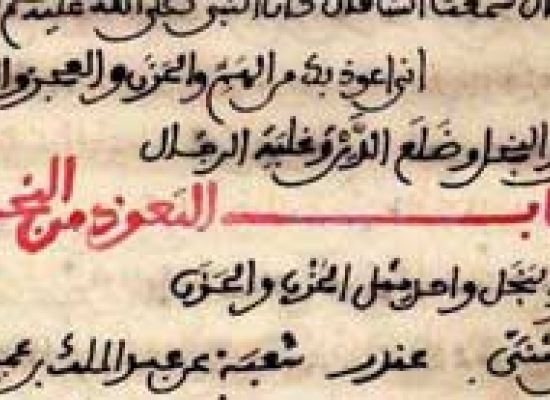 سمعت انسا قال كان النبي صلى الله عليه
اني اعوذ بك من الهم والحزن والعجز وال
والبخل وضلع الدين وغلبة الرجال
باب التعوذ من البخ
البخل واحد مثل الحزن والحزن
غندر شعبة عن عبد الملك بن عمي